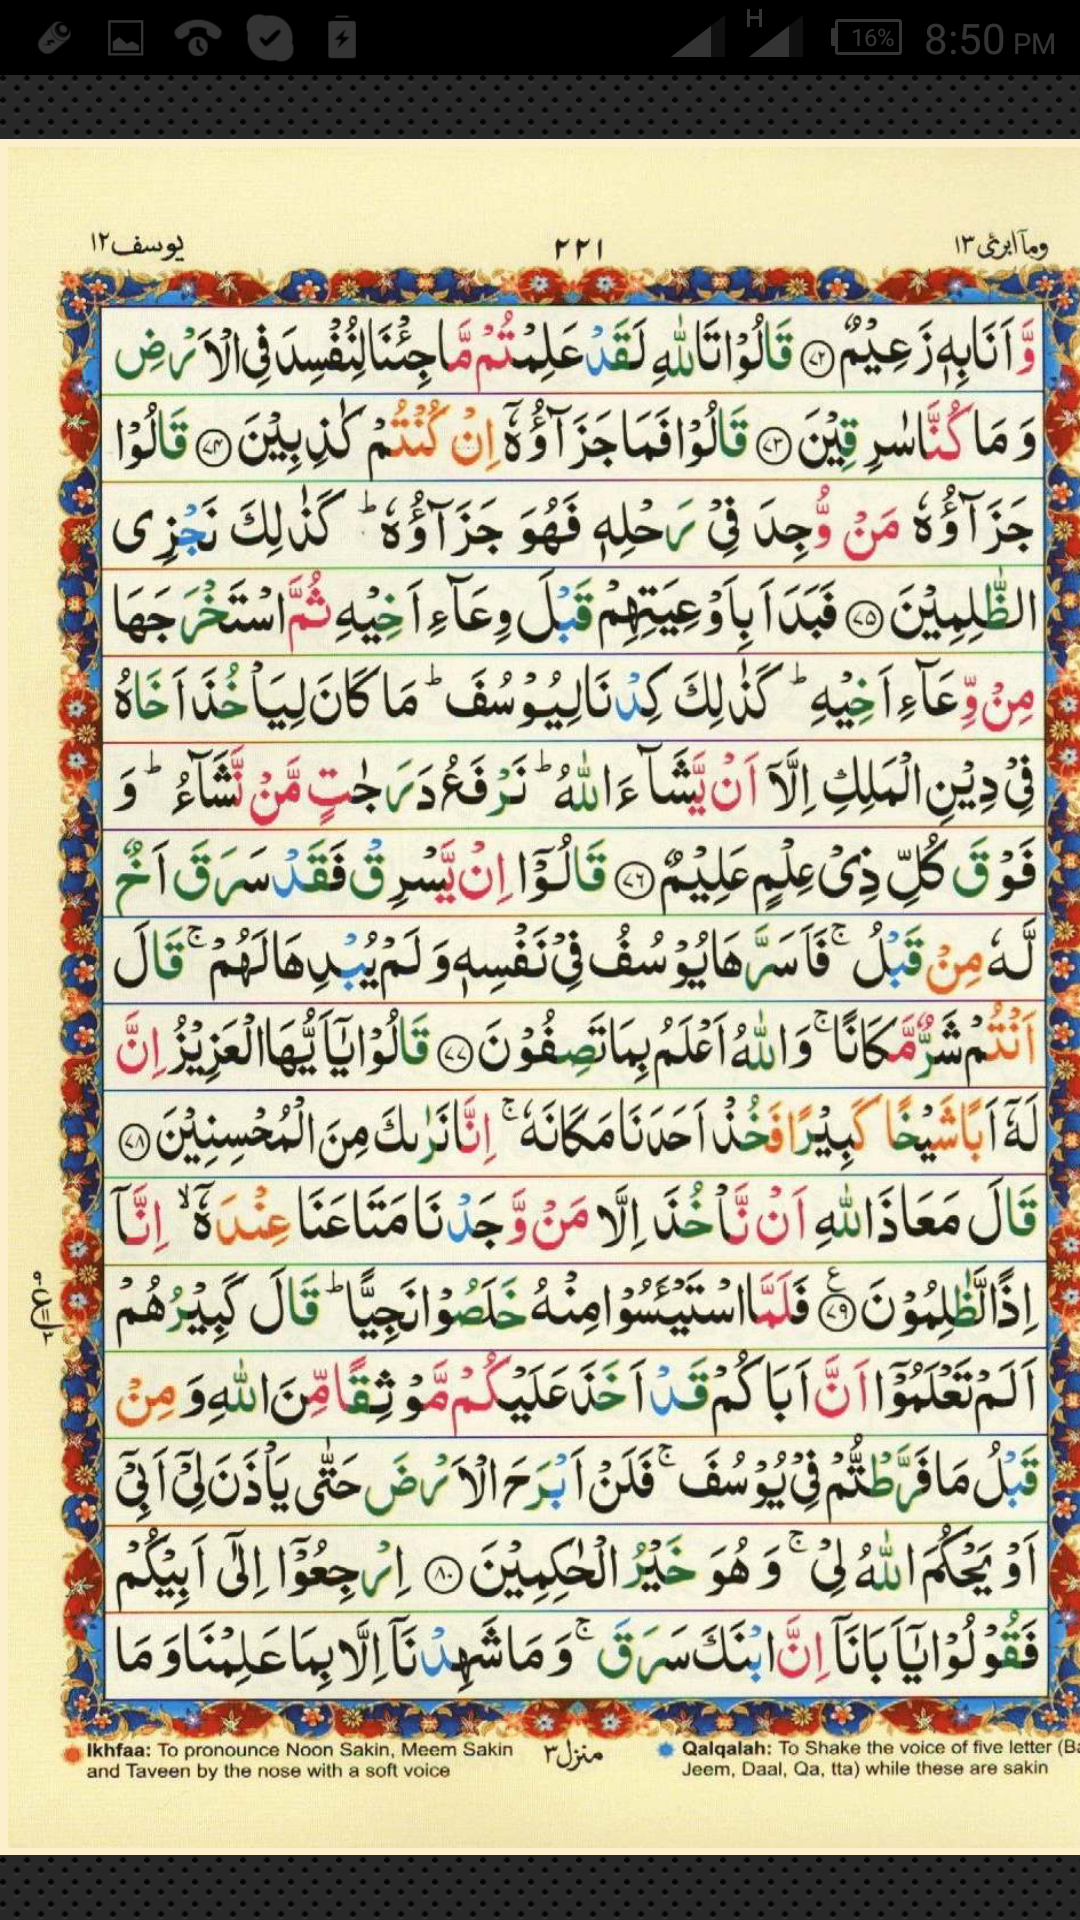 H 16% 8:50 PM
وماۤ ابرئ ١٣ ٢٢١ يوسف ١٢
وَّ اَنَا بِهٖ زَعِيْمٌ ﴿۷۲﴾ قَالُوْا تَاللّٰهِ لَقَدْ عَلِمْتُمْ مَّا جِئْنَا لِنُفْسِدَ فِى الْاَرْضِ
وَ مَا كُنَّا سٰرِقِيْنَ ﴿۷۳﴾ قَالُوْا فَمَا جَزَآؤُهٗۤ اِنْ كُنْتُمْ كٰذِبِيْنَ ﴿۷۴﴾ قَالُوْا
جَزَآؤُهٗ مَنْ وُّجِدَ فِىْ رَحْلِهٖ فَهُوَ جَزَآؤُهٗ ؕ كَذٰلِكَ نَجْزِى
الظّٰلِمِيْنَ ﴿۷۵﴾ فَبَدَاَ بِاَوْعِيَتِهِمْ قَبْلَ وِعَآءِ اَخِيْهِ ثُمَّ اسْتَخْرَجَهَا
مِنْ وِّعَآءِ اَخِيْهِ ؕ كَذٰلِكَ كِدْنَا لِيُوْسُفَ ؕ مَا كَانَ لِيَاْخُذَ اَخَاهُ
فِىْ دِيْنِ الْمَلِكِ اِلَّاۤ اَنْ يَّشَآءَ اللّٰهُ ؕ نَرْفَعُ دَرَجٰتٍ مَّنْ نَّشَآءُ ؕ وَ
فَوْقَ كُلِّ ذِىْ عِلْمٍ عَلِيْمٌ ﴿۷۶﴾ قَالُوْۤا اِنْ يَّسْرِقْ فَقَدْ سَرَقَ اَخٌ
لَّهٗ مِنْ قَبْلُ ۚ فَاَسَرَّهَا يُوْسُفُ فِىْ نَفْسِهٖ وَ لَمْ يُبْدِهَا لَهُمْ ۚ قَالَ
اَنْتُمْ شَرٌّ مَّكَانًا ۚ وَ اللّٰهُ اَعْلَمُ بِمَا تَصِفُوْنَ ﴿۷۷﴾ قَالُوْا يٰۤاَيُّهَا الْعَزِيْزُ اِنَّ
لَهٗۤ اَبًا شَيْخًا كَبِيْرًا فَخُذْ اَحَدَنَا مَكَانَهٗ ۚ اِنَّا نَرٰىكَ مِنَ الْمُحْسِنِيْنَ ﴿۷۸﴾
قَالَ مَعَاذَ اللّٰهِ اَنْ نَّاْخُذَ اِلَّا مَنْ وَّجَدْنَا مَتَاعَنَا عِنْدَهٗۤ ۙ اِنَّاۤ
اِذًا لَّظٰلِمُوْنَ ﴿۷۹﴾ ع فَلَمَّا اسْتَيْـَٔسُوْا مِنْهُ خَلَصُوْا نَجِيًّا ؕ قَالَ كَبِيْرُهُمْ
اَلَمْ تَعْلَمُوْۤا اَنَّ اَبَاكُمْ قَدْ اَخَذَ عَلَيْكُمْ مَّوْثِقًا مِّنَ اللّٰهِ وَ مِنْ
قَبْلُ مَا فَرَّطْتُّمْ فِىْ يُوْسُفَ ۚ فَلَنْ اَبْرَحَ الْاَرْضَ حَتّٰى يَاْذَنَ لِىْۤ اَبِىْۤ
اَوْ يَحْكُمَ اللّٰهُ لِىْ ۚ وَ هُوَ خَيْرُ الْحٰكِمِيْنَ ﴿۸۰﴾ اِرْجِعُوْۤا اِلٰٓى اَبِيْكُمْ
فَقُوْلُوْا يٰۤاَبَانَاۤ اِنَّ ابْنَكَ سَرَقَ ۚ وَ مَا شَهِدْنَاۤ اِلَّا بِمَا عَلِمْنَا وَ مَا
Ikhfaa: To pronounce Noon Sakin, Meem Sakin
and Taveen by the nose with a soft voice
منزل ٣
Qalqalah: To Shake the voice of five letter (Ba
Jeem, Daal, Qa, tta) while these are sakin